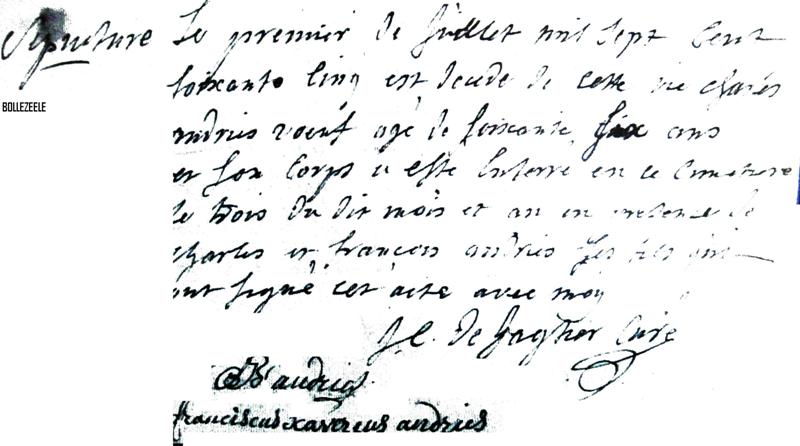 Sepulture
BOLLEZEELE
Le premier de juillet mil sept cent
soixante cinq est decede de cette vie charles
andries voeuf agé de soixante six ans
et son corps a esté enterré en ce cimetiere
le trois du dit mois et an en presence de
charles et francois andries ses fils qui
ont signé cet acte avec moy
J.C. De Curé
andries
franciscus xaverius andries